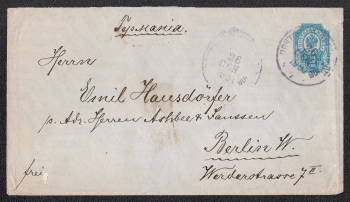 Германія.
Herrn
Emil Hausdörfer
p. Adr. Herren Ashbee & Janssen
Berlin W.
Werderstrasse 7 II.
frei